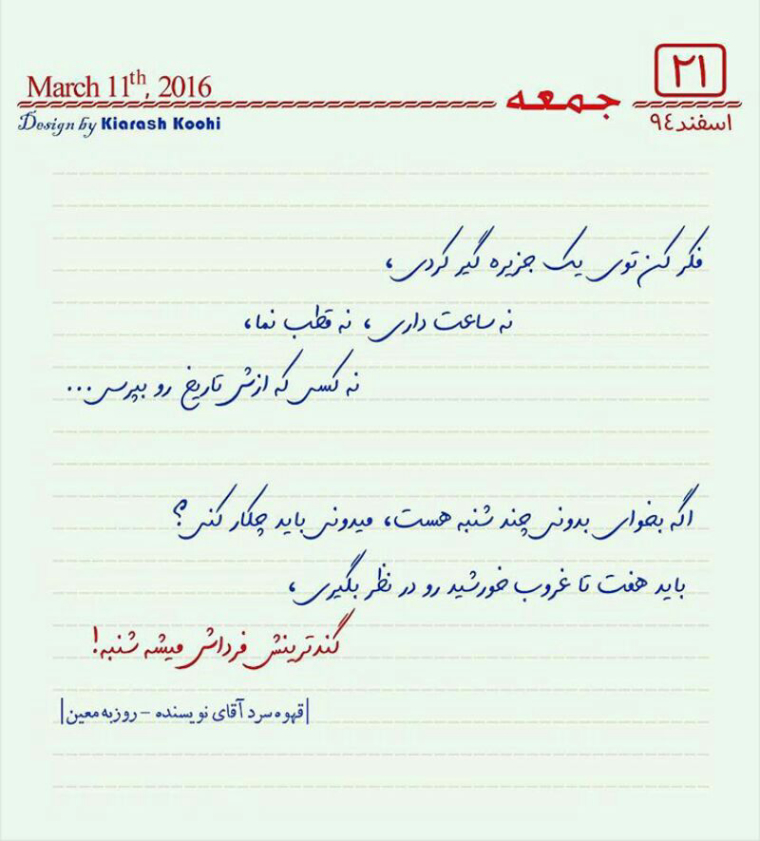 ۲۱
March 11th, 2016
جمعه
اسفند۹٤
Design by Kiarash Koohi
فکر کن توی یک جزیره گیر کردی،
نه ساعت داری، نه قطب نما،
نه کسی که ازش تاریخ رو بپرسی...
اگه بخوای بدونی چند شنبه هست، میدونی باید چکار کنی؟
باید هفت تا غروب خورشید رو در نظر بگیری،
کندترینش فرداش میشه شنبه!
|قهوه سرد آقای نویسنده - روزبه معین|